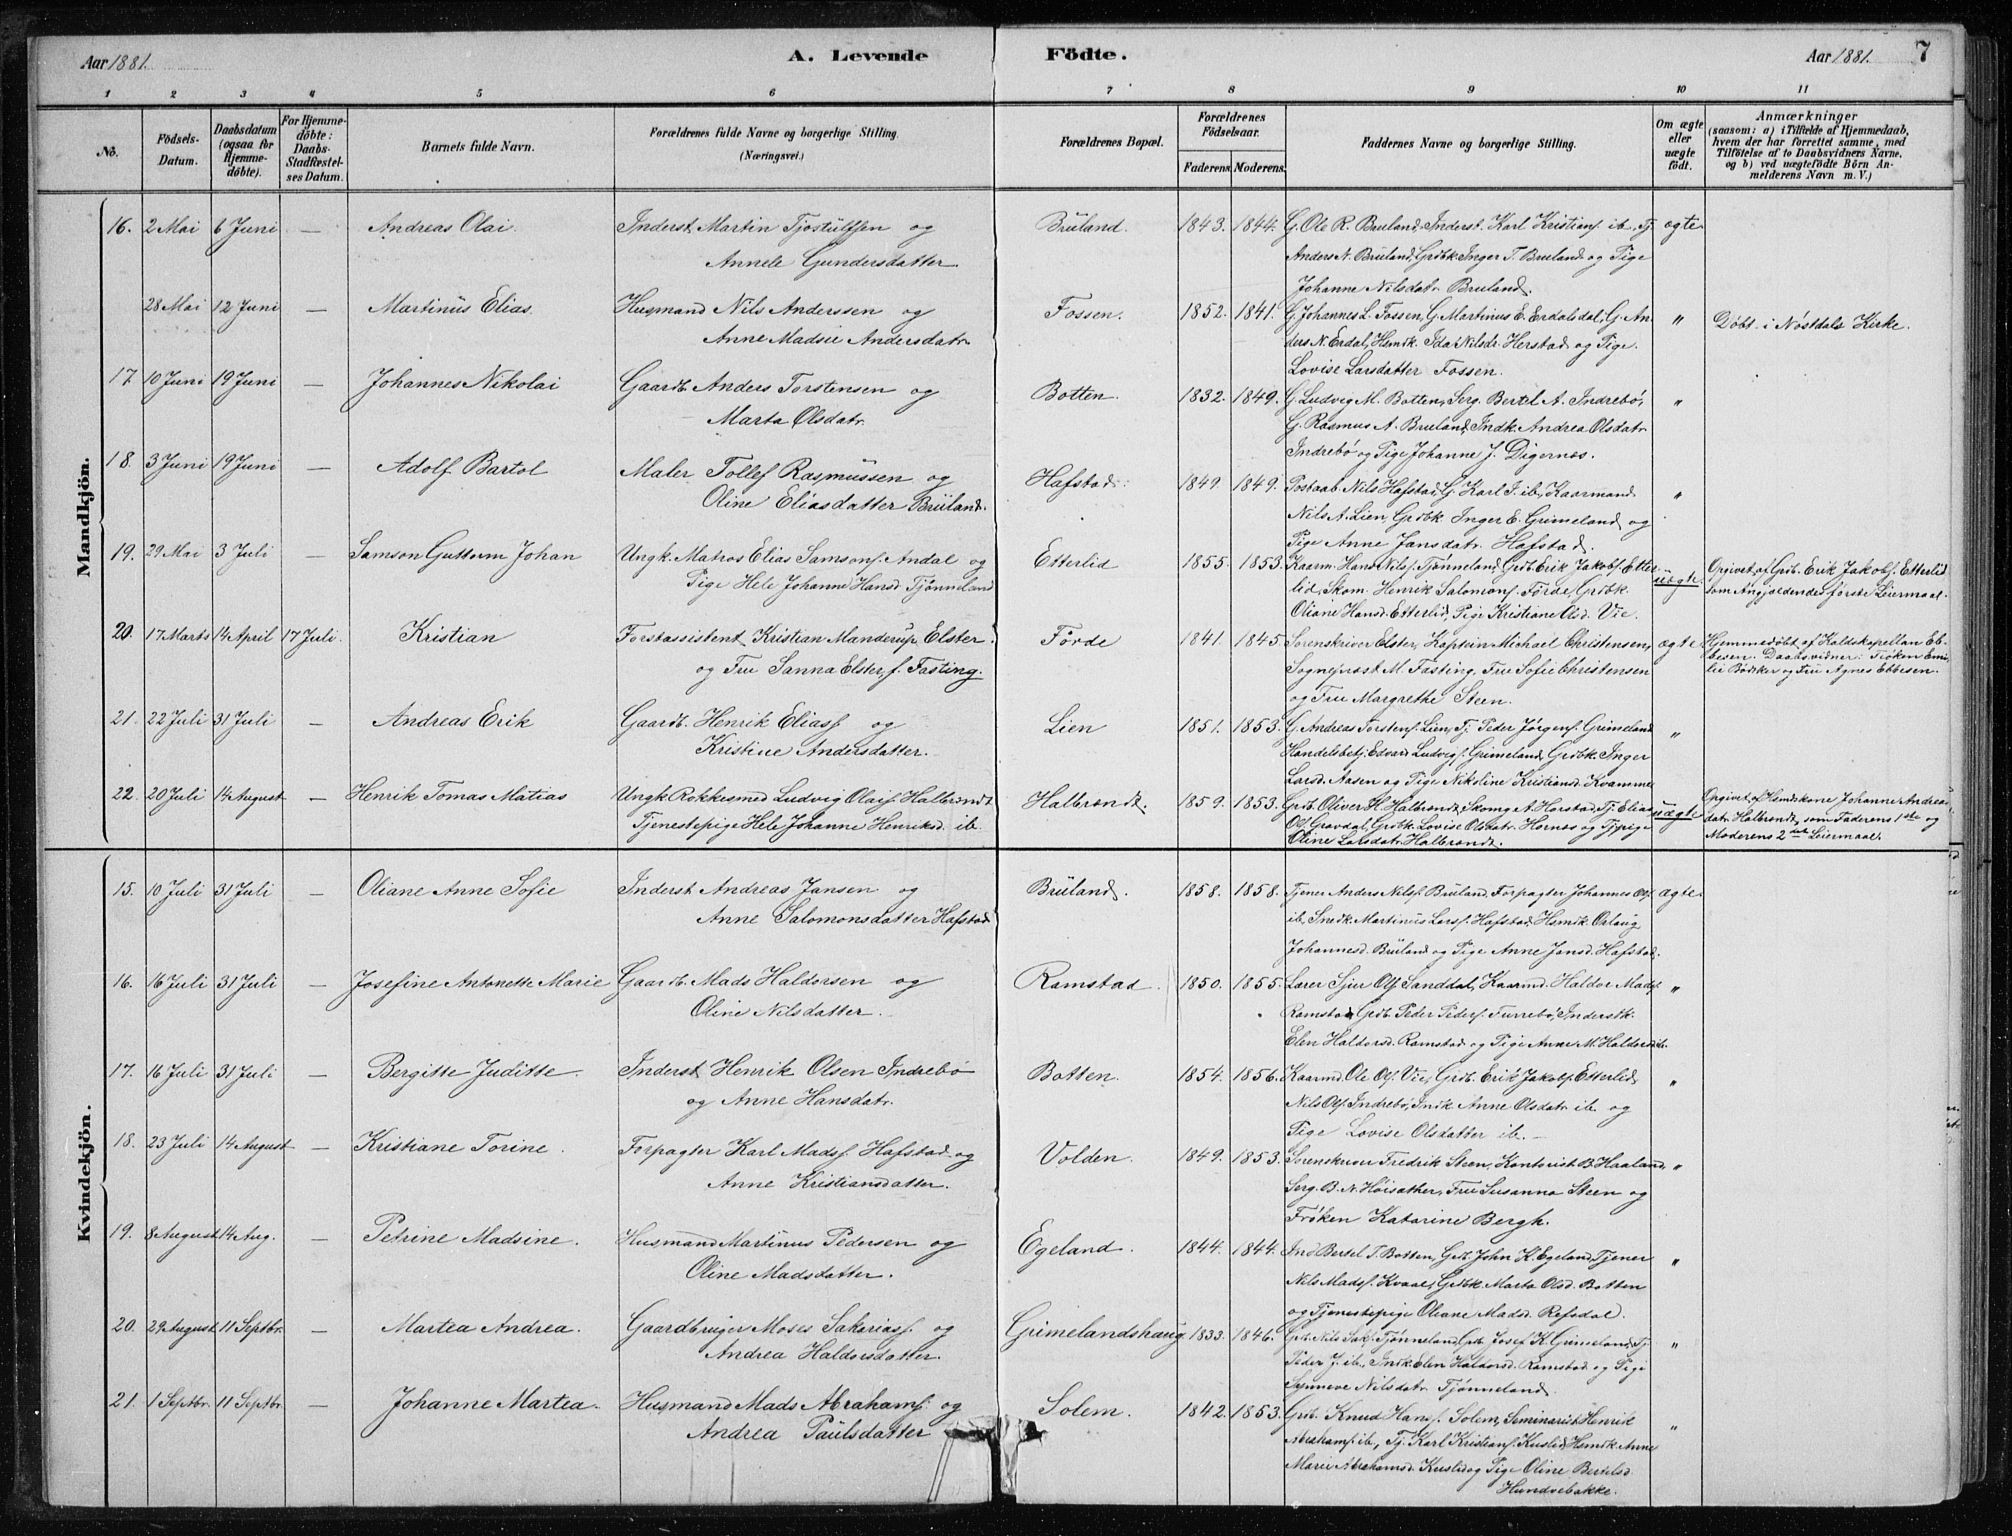 Aar 1881.
A. Levende Födte.
Aar 1881.
7
1 2 3 4 5 6 7 8 9 10 11
No.
Födsels-Datum.
Daabsdatum (ogsaa for Hjemme-döbte).
For Hjemme-döbte: Daabs-Stadfæstel-ses Datum.
Barnets fulde Navn.
Forældrenes fulde Navne og borgerlige Stilling. (Næringsvei.)
Forældrenes Bopæl.
Forældrenes Födselsaar.
Faderens. Moderens.
Faddernes Navne og borgerlige Stilling.
Om ægte eller uægte födt.
Anmærkninger (saasom: a) i Tilfælde af Hjemmedaab, hvem der har forrettet samme, med Tilföielse af to Daabsvidners Navne, og b) ved uægtefödte Börn Anmelderens Navn m. V.)
Mandkjön.
16. 2 Mai 6 Juni — Andreas Olai. Inderst Martin Tjostulfsen og Brüland. 1843. 1844. G. Ole R. Bruland, Inderst. Karl Kristians. ib., Tj. ægte
Annele Gundersdatter. Anders N. Bruland, Grdbk. Inger T. Bruland og Pige
Johanne Nilsdatr. Bruland.
28 Mai 12 Juni — Martinus Elias. Husmand Nils Anderssen og Fossen. 1852. 1841. G. Johannes L. Fossen, G. Martinus E. Erdalsdal, G. An- " Døbt i Nøstdals Kirke.
Anne Madsie Andersdatr. ders N. Erdal, Hsmk. Ida Nilsdr. Herstad og Pige
Lovise Larsdatter Fossen.
17 10 Juni 19 Juni — Johannes Nikolai Gaardb. Anders Torstensen og Botten. 1832. 1849. G. Ludvig M. Botten, Serg. Bertel A. Indrebø, "
Marta Olsdatr. G. Rasmus A. Bruland, Indk. Andrea Olsdatr
Indrebø og Pige Johanne J. Digernæs.
18. 3 Juni 19 Juni — Adolf Bartol Maler Tollef Rasmussen og Hafstad. 1849. 1849. Postaab. Nils Hafstad, G. Karl J. ib., Kaarmand "
Oline Eliasdatter Brüland. Nils A. Lien, Grdbk Inger E. Grimeland og
Pige Anne Jansdatr. Hafstad.
19. 29 Mai 3 Juli — Samson Guttorm Johan Ungk. Matros Elias Samsons. Andal og Etterlid 1855. 1853. Kaarm. Hans Nils. Tjønneland, Grdb. Erik Jakobs. Etter- uægte. Opgivet af Grdb. Erik Jakobs. Etterlid
Pige Hele Johanne Hansd. Tjønneland lid, Skom. Henrik Salomons. Førde, Grdbk som Angjældendes første Leiermaal.
Oliane Hansd. Etterlid, Pige Kristiane Olsd. Vie.
20. 17 Marts 14 April 17 Juli. Kristian Forstassistent Kristian Manderup Elster Förde 1841. 1845 Sorenskriver Elster, Kaptein Michael Christensen, ægte Hjemmedøbt af Kaldskapellan Eb-
og Fru Sanna Elster, f. Fasting. Sogneprest M. Fasting, Fru Sofie Christensen besen. Daabsvidner: Frøken Emi-
og Fru Margrethe Steen. lie Bødtker og Fru Agnes Ebbesen.
21. 22 Juli 31 Juli — Andreas Erik Gaardb. Henrik Eliass. og Lien 1851. 1853. G. Andreas Torstens. Lien, Tj. Peder Jørgens. Grimeland "
Kristine Andersdatter. Handelsbetj. Edvard Ludvigs. Grimeland, Grdbk Inger
Larsd. Aasen og Pige Nikoline Kristiansd. Kvamme
22. 20 Juli 14 August — Henrik Tomas Matias Ungk. Rokkesmed Ludvig Olais. Halbrendt Halbrendt. 1859. 1853. Grdb. Oliver H. Halbrendt, Skomg. A. Horstad, Tj. Elias uægte Opgivet af Hsmdskone Johanne Andreas-
Tjenestepige Hele Johanne Henriksd. ib. Ols. Gravdal, Grdbk. Lovise Olsdatr. Hornæs og Tjpige datr. Halbrendt, som Faderens 1ste og
Oline Larsdatr. Halbrendt. Moderens 2det Leiermaal.
Kvindekjön.
15. 10 Juli 31 Juli — Oliane Anne Sofie Inderst Andreas Jansen og Brüland. 1858. 1858. Tjener Anders Nils. Brüland, Forpagter Johannes Ols. ægte
Anne Salomonsdatter Hafstad ib., Snedk. Martinus Lars. Hafstad, Hsmk. Orlaug
Johannesd. Brüland og Pige Anne Jansd. Hafstad.
16. 16 Juli 31 Juli — Josefine Antonette Marie Gaardb. Mads Haldorsen og Ramstad. 1850. 1855. Lærer Sjur Ols. Sanddal, Kaarmd. Haldor Mads. "
Oline Nilsdatter. Ramstad, Grdb. Peder Peders. Furrebø, Inderstk.
Elen Haldorsd. Ramstad og Pige Anne M. Haldorsdtr.
17. 16 Juli 31 Juli — Bergitte Juditte. Inderst Henrik Olsen Indrebø Botten. 1854. 1856. Kaarmd Ole Ols. Vie, Grdb. Erik Jakobs. Etterlid, "
og Anne Hansdatr. Nils Ols. Indrebø, Indk Anne Olsdatr ib. og
Pige Lovise Olsdatter ib.
18. 23 Juli 14 August — Kristiane Torine. Forpagter Karl Mads. Hafstad og Volden. 1849. 1853. Sorenskriver Fredrik Steen, Kontorist B. Haaland, "
Anne Kristiansdatter. Serg. B. N. Høisæther, Fru Susanna Steen og
Frøken Katarine Bergh.
19. 8 August 14 Aug. — Petrine Madsine. Husmand Martinus Pedersen og Egeland. 1844. 1844. Ind Bertel T. Botten, Grdb. John K. Egeland, Tjener "
Oline Madsdatter. Nils Mads. Kvaal, Grdbk Marta Olsd. Botten
og Tjenestepige Oliane Madsd. Refsdal.
20. 29 August 11 Septbr. — Martea Andrea. Gaardbruger Moses Sakarias. og Grimelandshaug. 1833. 1846. Grb. Nils Sak. Tjønneland, Grb. Josef K. Grimeland, Tj. "
Andrea Haldorsdatter. Peder J. ib., Indk Elen Haldorsd. Ramstad og Pige
Synneve Nilsdatr Tjønneland.
21. 1 Septbr. 11 Septbr. — Johanne Martea. Husmand Mads Abrahams. og Solem. 1842. 1853. Grb. Knud Hans. Solem, Seminarist Henrik "
Andrea Paulsdatter Abrahams. ib., Tj. Karl Kristians. Kuslid, Hsmk Anne
Marie Abrahamsd. Kuslid og Pige Oline Bertelsd.
Hundvebakke.